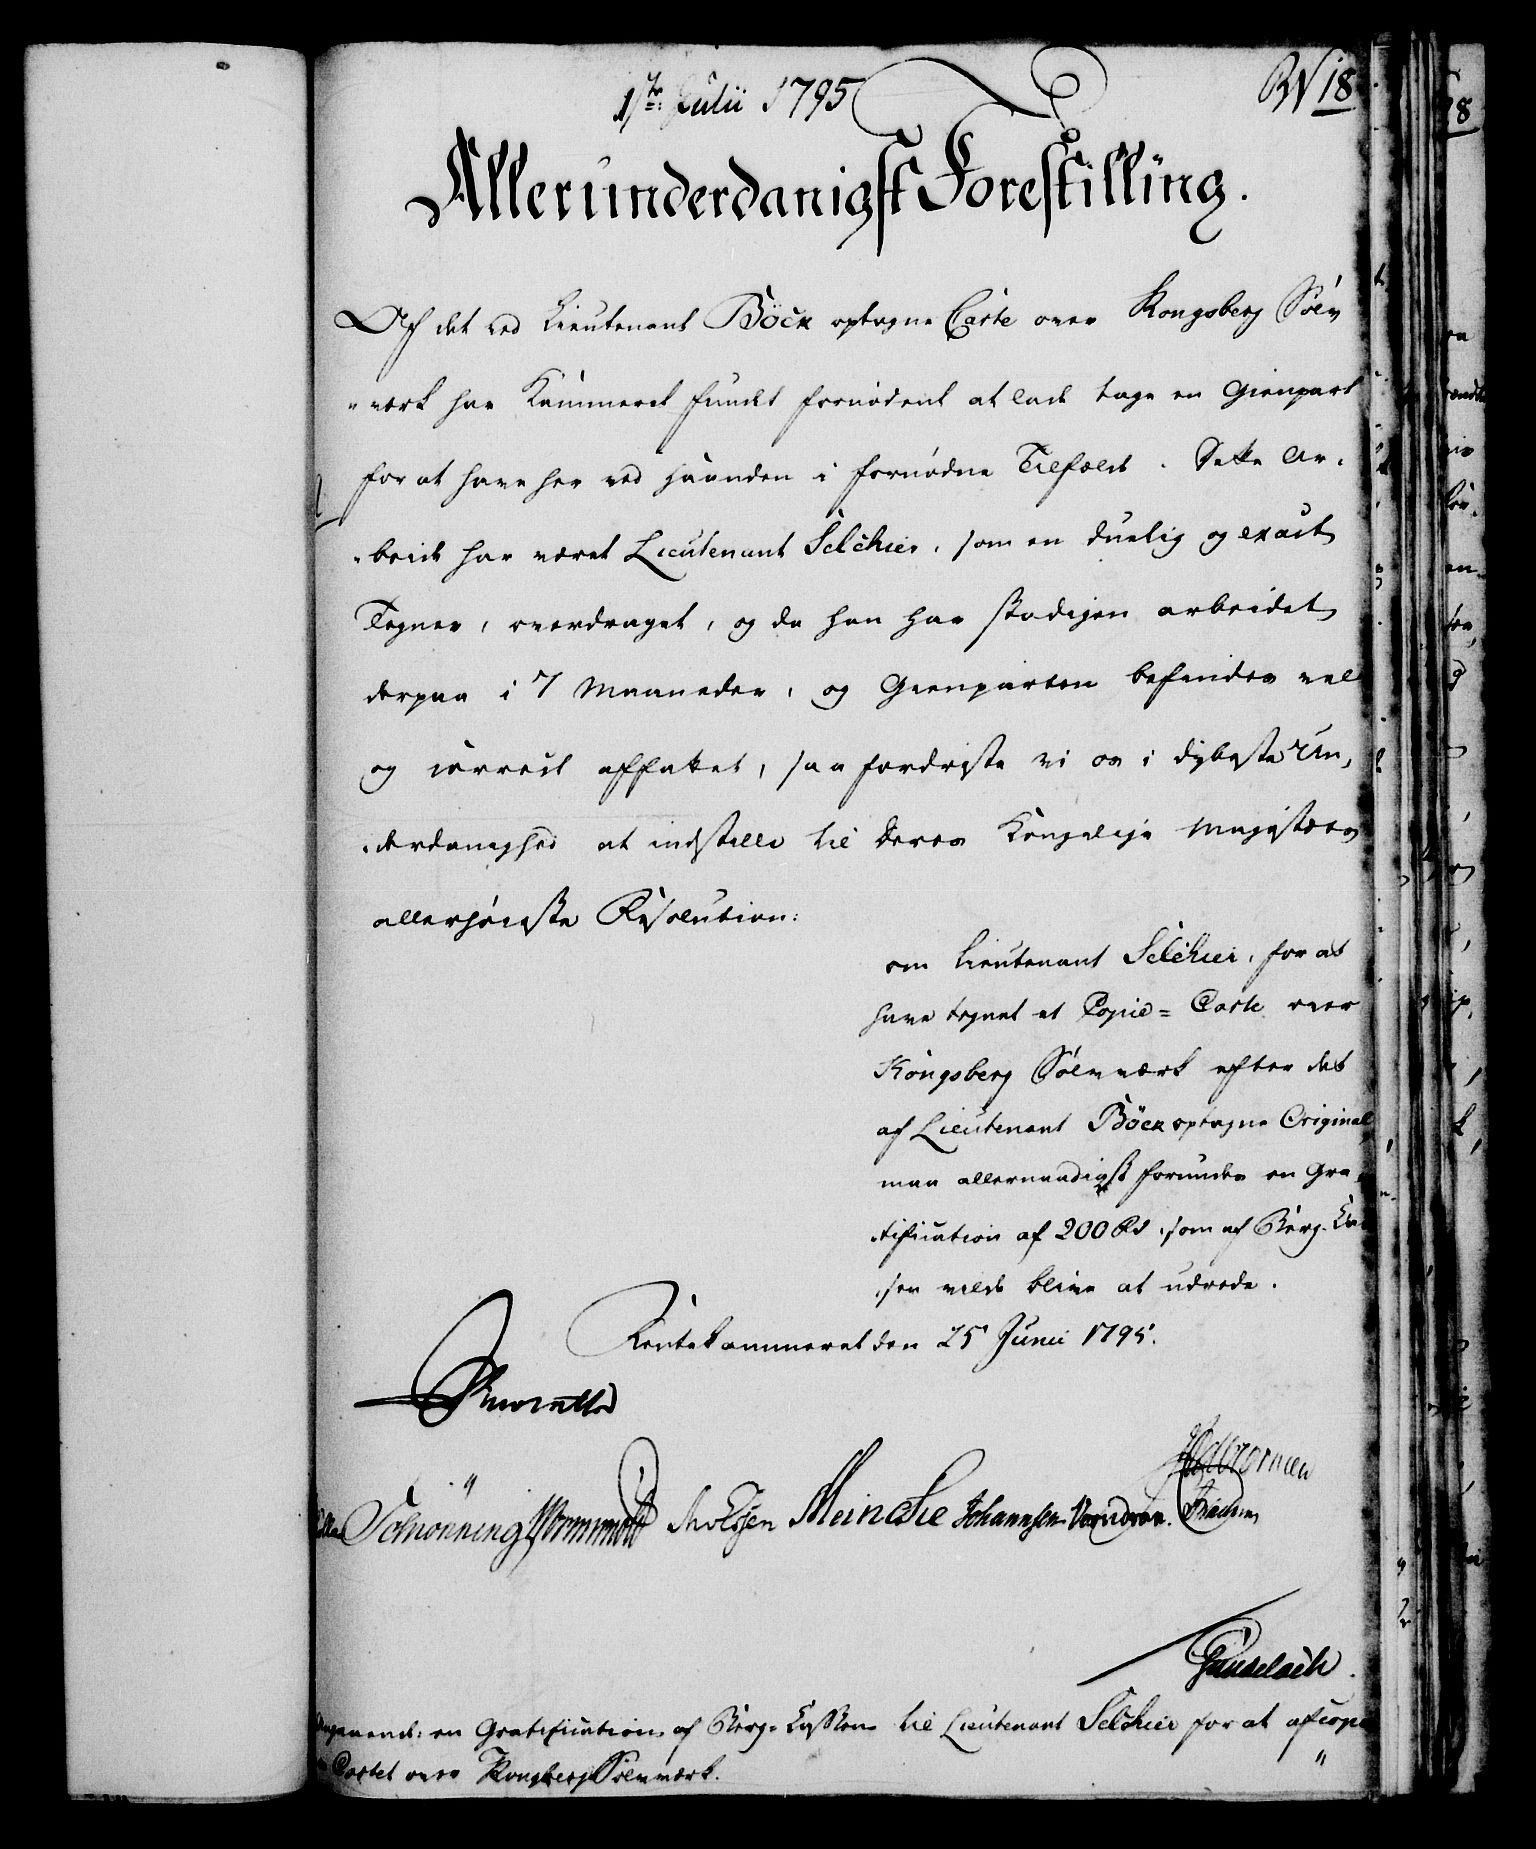 1te Julii 1795
RN 18
Allerunderdanigst Forestilling.
Af det ved Lieutenant Böck optagne Carte over Kongsberg Sölv
-værk har Kammeret fundet fornödent at lade tage en Gienpart
for at have her ved Haanden i fornödne Tilfælde. Dette Ar-
-beide har været Lieutenant Selchier, som en duelig og exact
Tegner, overdraget, og da han har stadigen arbeidet
derpaa i 7 Maaneder, og Gienparten befindes vel
og correct affattet, saa fordriste vi os i dybeste Un-
-derdanighed at indstille til Deres Kongelige Majestæts
allerhöieste Resolution:
om Lieutenant Selchier, for at
have tegnet et Copie-Carte over
Kongsberg Sölvværk efter det
af Lieutenant Böck optagne Original
maa allernaadigst forundes en Gra-
-tification af 200 Rd, som af Berg-Cas-
-sen vilde blive at udrede.
Rentekammeret den 25 Junii 1795.
Schönning Wormskiold Meincke Johannsen
Angaaende: en Gratification af Berg-Cassen til Lieutenant Selchier for at afcopie
Cartet over Kongsberg Sölvværk.